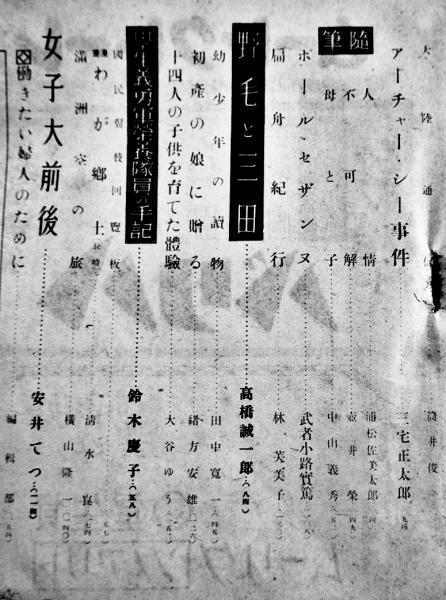 大陸通信 筒井俊一
アーチャー・シー事件 三宅正太郎(九四)
隨筆
人情 浦松佐美太郎
不可解 壺井榮
母と子 中山義秀
ポール・セザンヌ 武者小路實篤
扁舟紀行 林芙美子
野毛と三田 高橋誠一郎(八四)
幼少年の讀物 田中寛一(六四)
初産の娘に贈る 緒方安雄(一二六)
十四人の子供を育てた體驗 大谷ゆう
義勇軍榮養隊員の手記 鈴木慶子(三八)
國民回覽板
わが郷土 清水崑(七四)
滿洲空の旅 横山隆一(一〇四)
女子大前後 安井てつ(二四)
働きたい婦人のために 編輯部